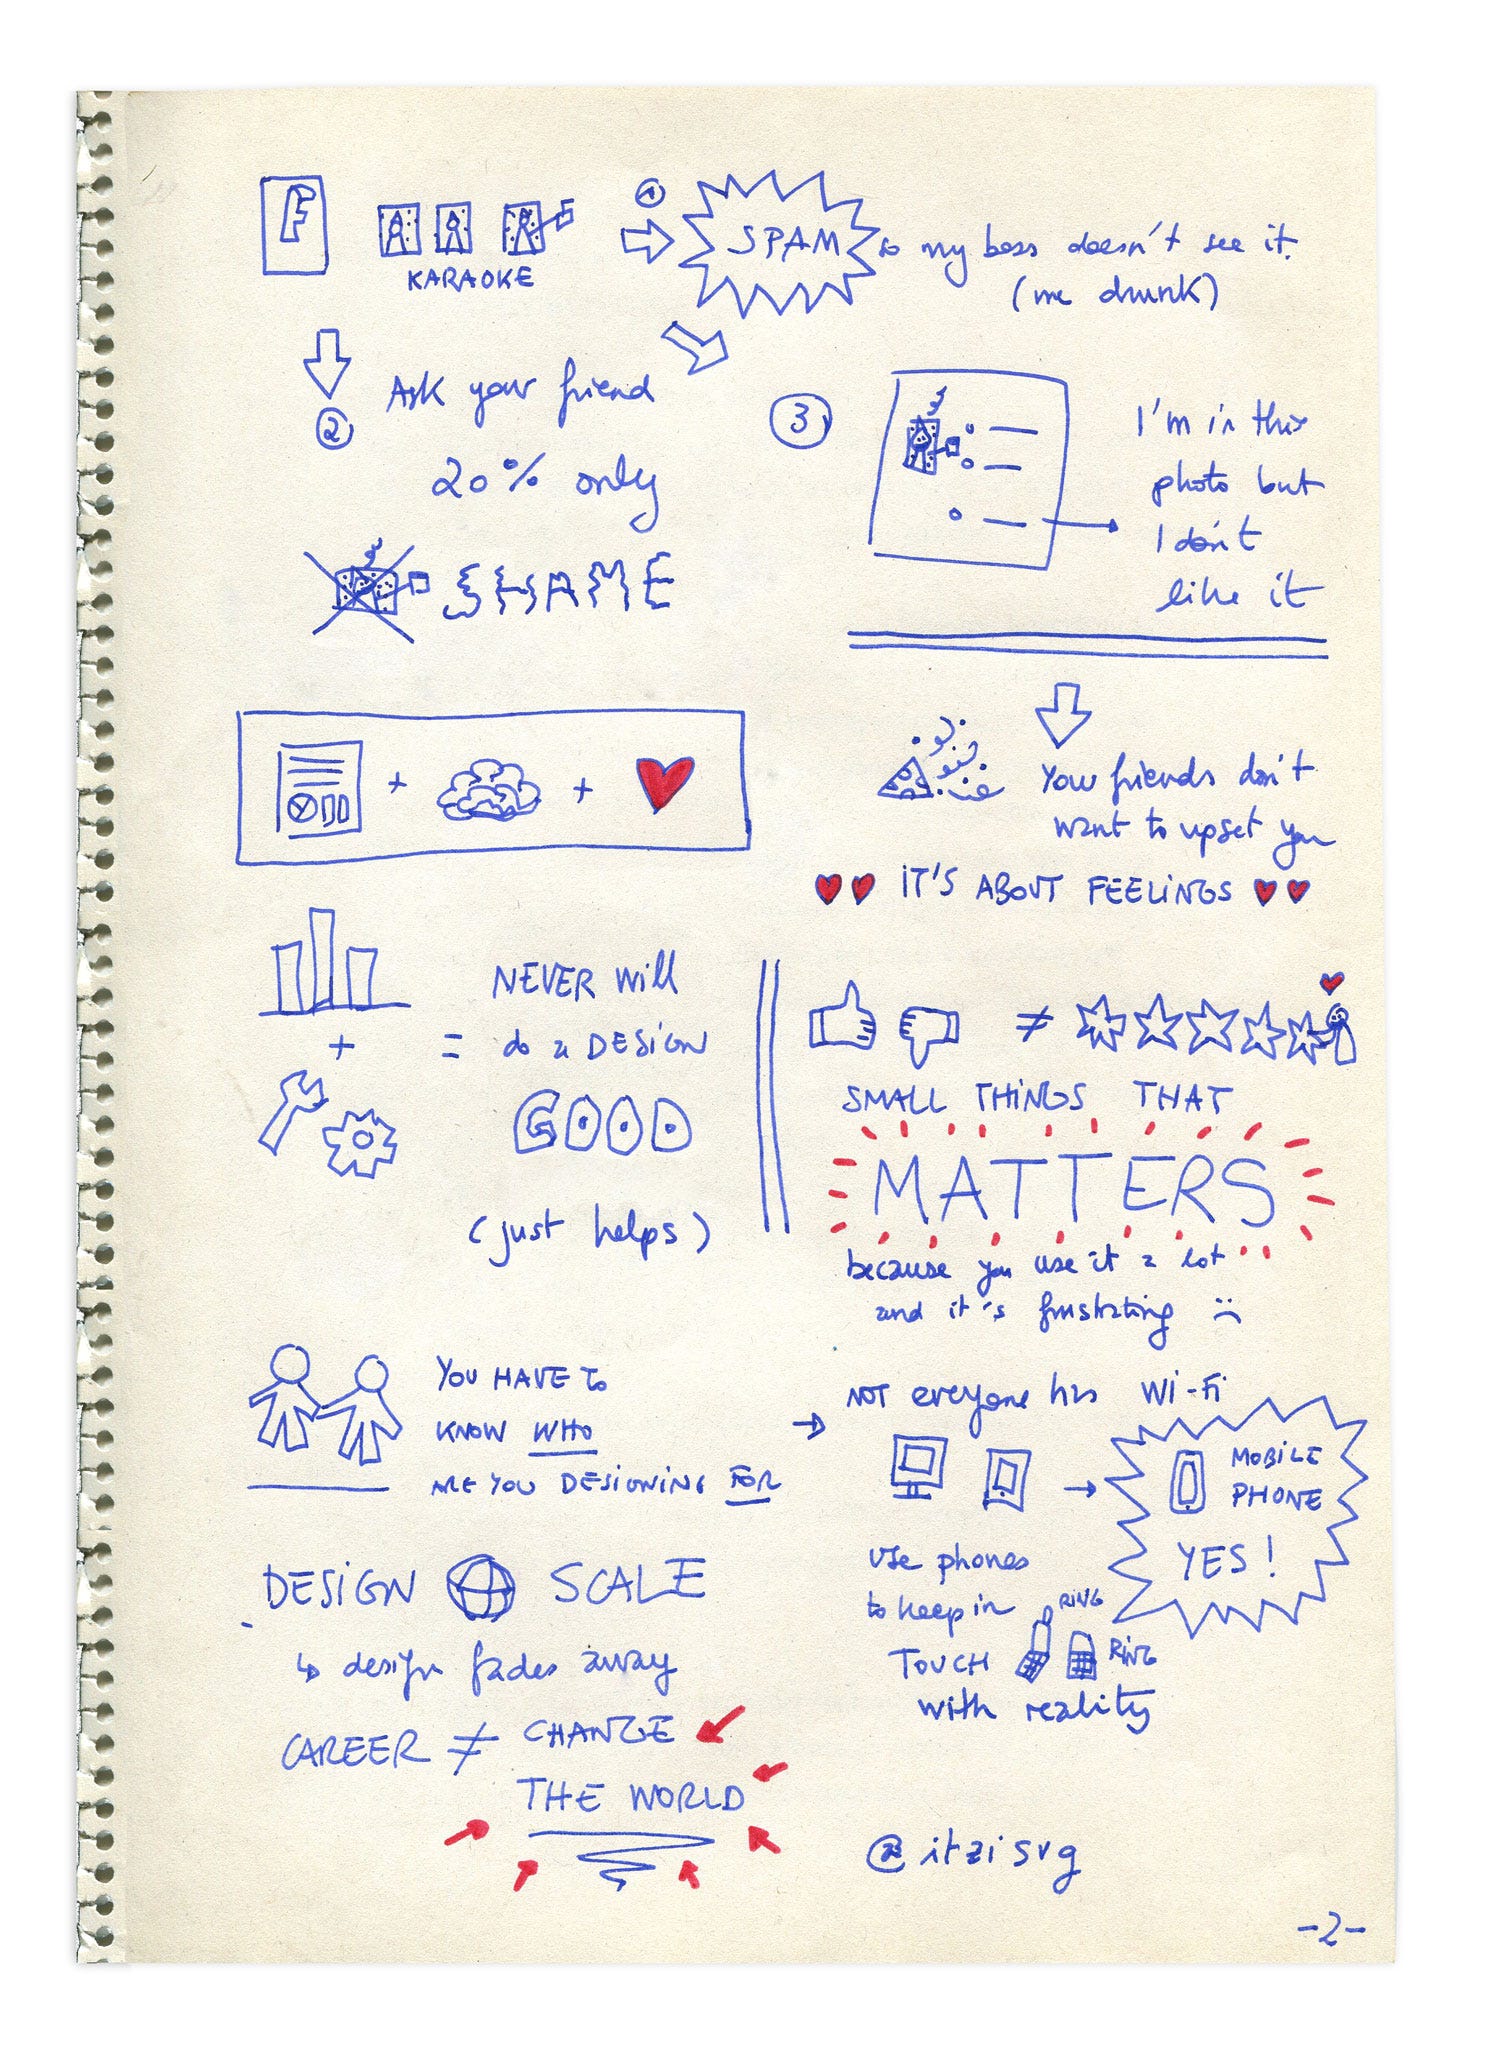 F
KARAOKE
1
SPAM so my boss doesn't see it.
(me drunk)
2
Ask your friend
20% only
SHAME
3
I'm in this
photo but
I don't
like it
Your friends don't
want to upset you
IT'S ABOUT FEELINGS
+ +
+
= NEVER will
do a DESIGN
GOOD
(just helps)
≠
SMALL THINGS THAT
MATTERS
because you use it a lot
and it's frustrating :(
YOU HAVE TO
KNOW WHO
ARE YOU DESIGNING FOR
NOT everyone has Wi-Fi
MOBILE
PHONE
YES!
Use phones
to keep in
TOUCH
RING
RING
with reality
DESIGN SCALE
design fades away
CAREER ≠ CHANGE
THE WORLD
@itzisvg
-2-